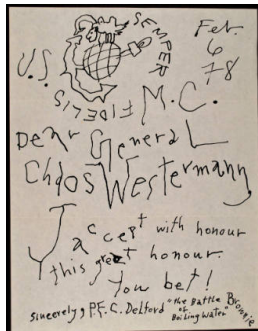 SEMPER
FIDELIS
Feb.
6
78
U.S. M.C.
Dear General
Chaos Westermann,
I accept with honour
this great honour.
You bet!
Sincerely, P.F.C. Delford "the Battle
of
Boiling Water" Brownie